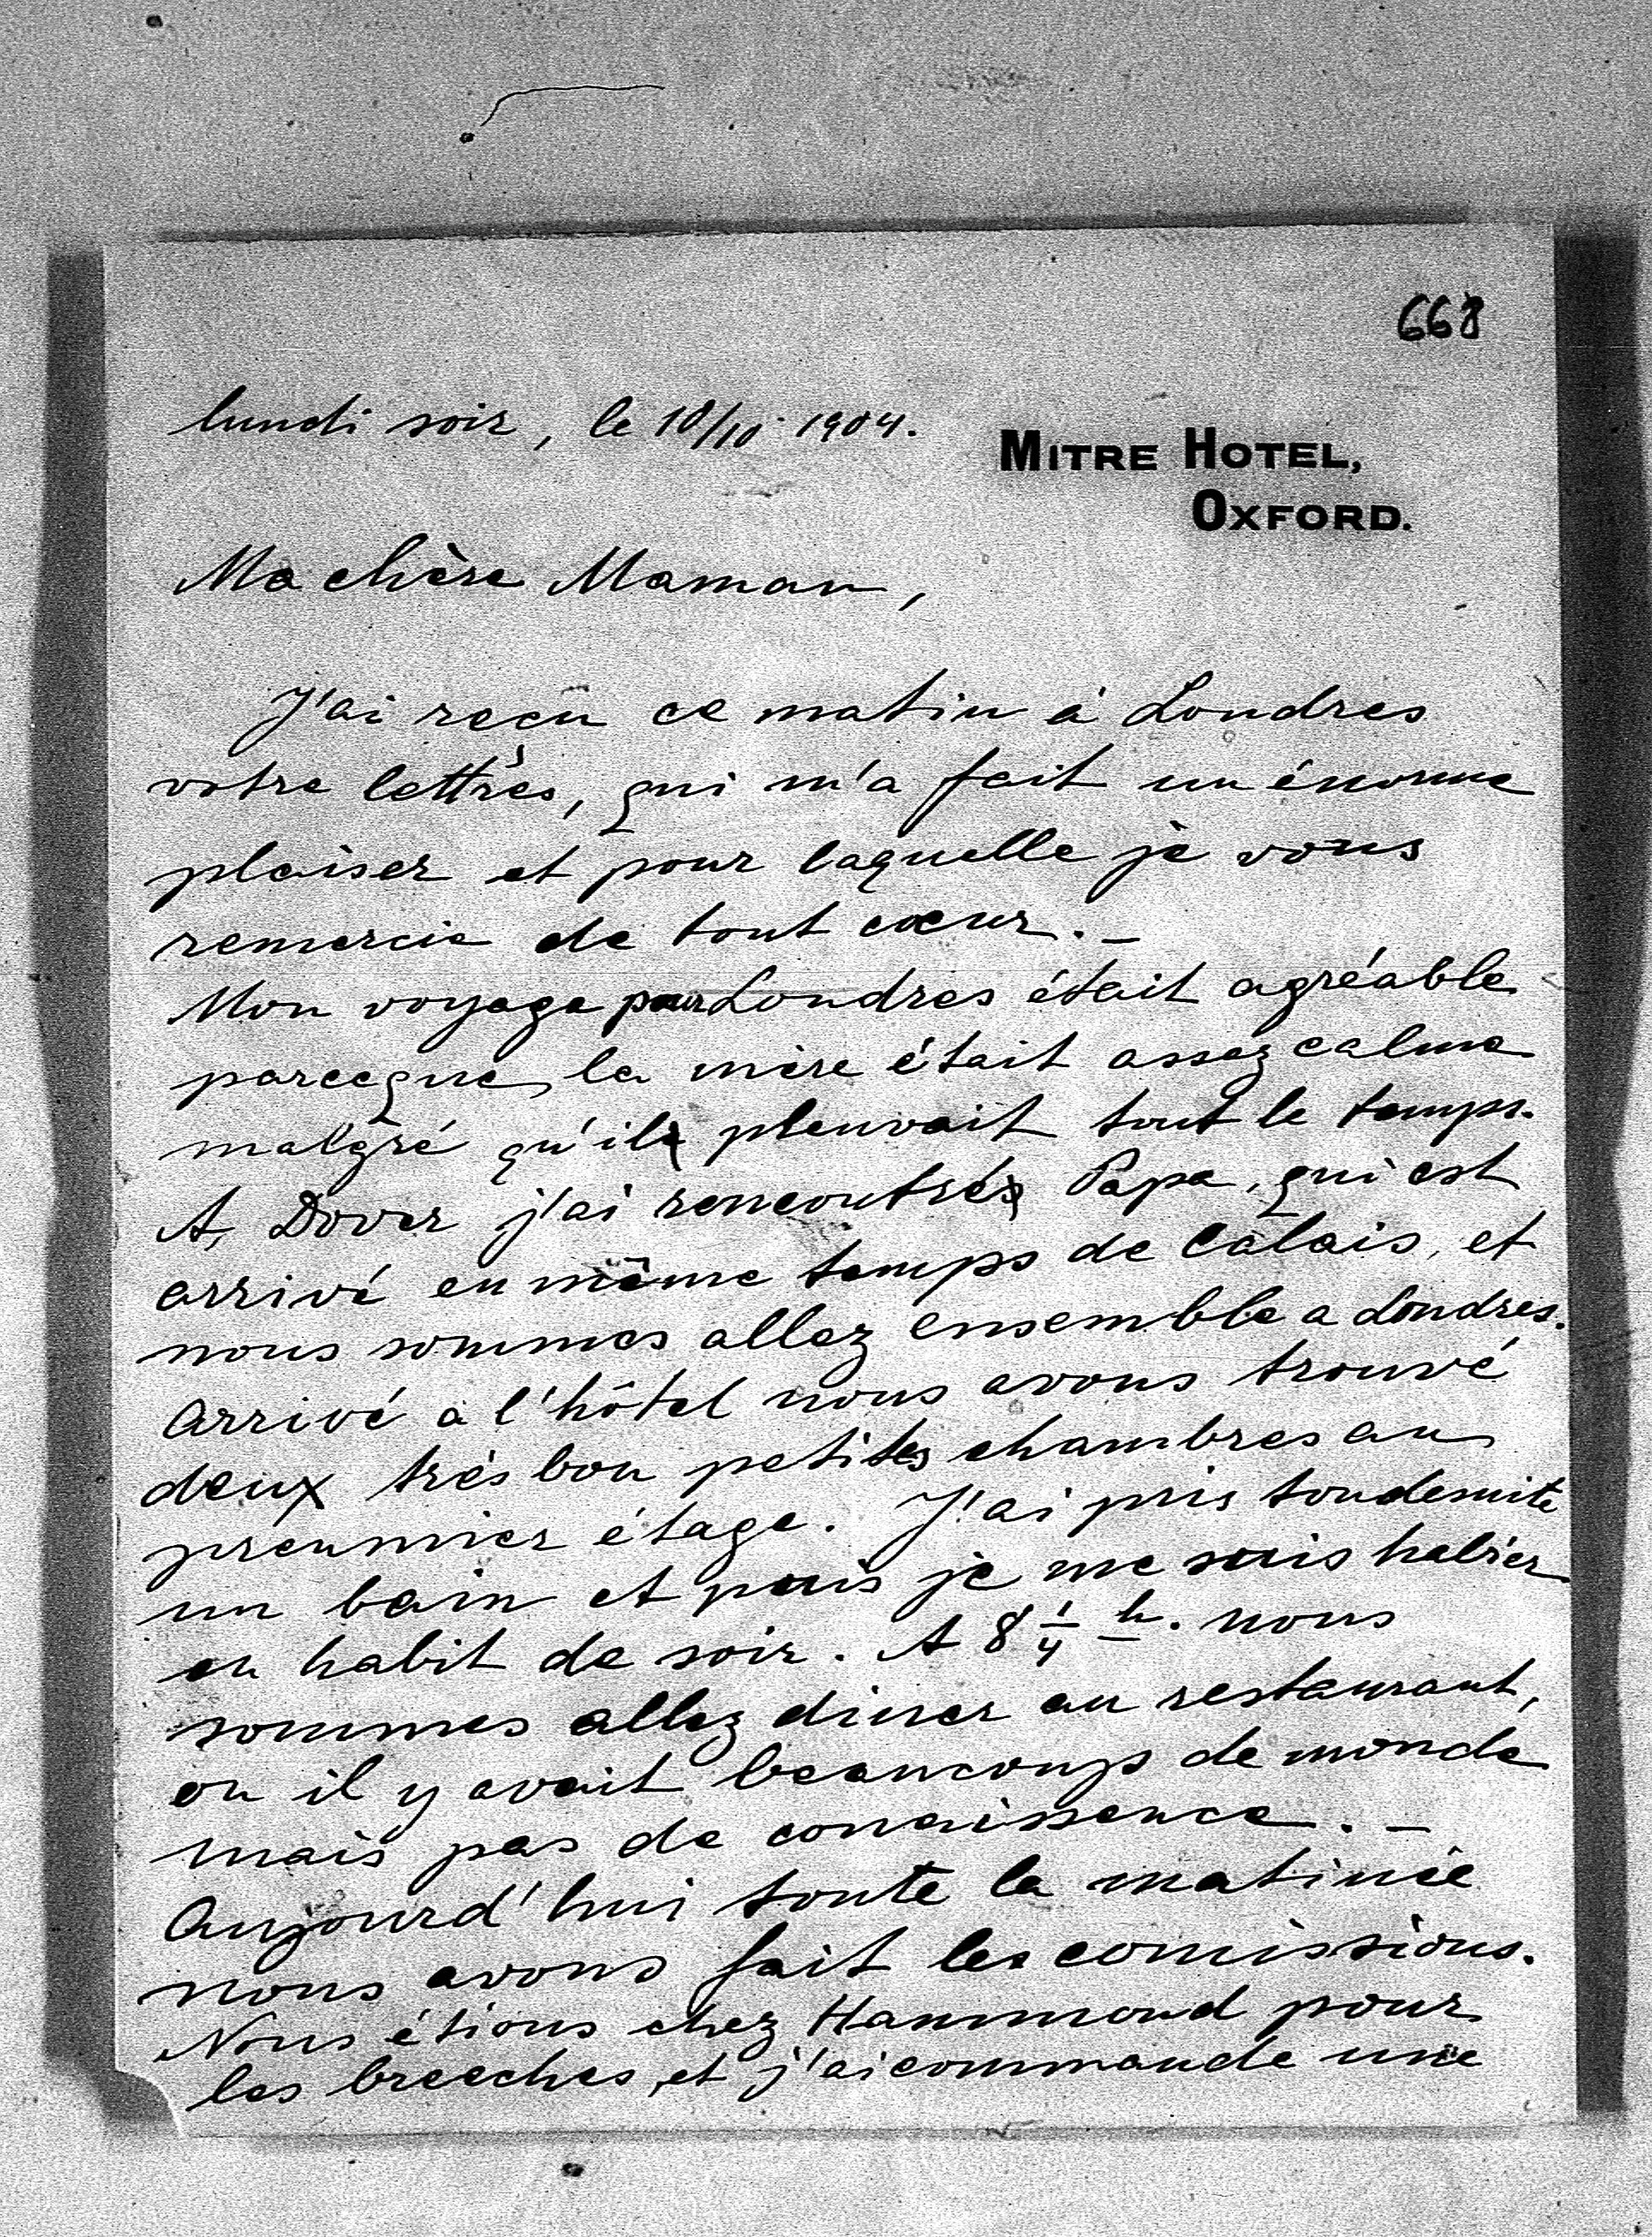 668
lundi soir, le 10/10 1904.
MITRE HOTEL,
OXFORD.
Ma chère Maman,
J'ai reçu ce matin à Londres
votre lettrès, qui m'a fait un énorme
plaiser et pour laquelle je vous
remercie de tout cœur. —
Mon voyage pour Londres était agréable
parceque, la mère était assez calme
malgré qu'il pleuvait tout le temps.
A, Dover j'ai rencontré Papa, qui est
arrivé en même temps de Calais, et
nous sommes allez ensemble a Londres.
Arrivé a l'hôtel nous avons trouvé
deux très bon petites chambres au
preumier étage. J'ai pris toudesuite
un bain et puis je me suis habier
en habit de soir. A 8 1/4 h. nous
sommes allez diner au restaurant,
ou il y avait beaucoups de monde
mais pas de conaissence. —
Aujourd'hui toute la matinée
nous avons fait les comissions.
Nous étions chez Hammond pour
les breeches, et j'ai commande une